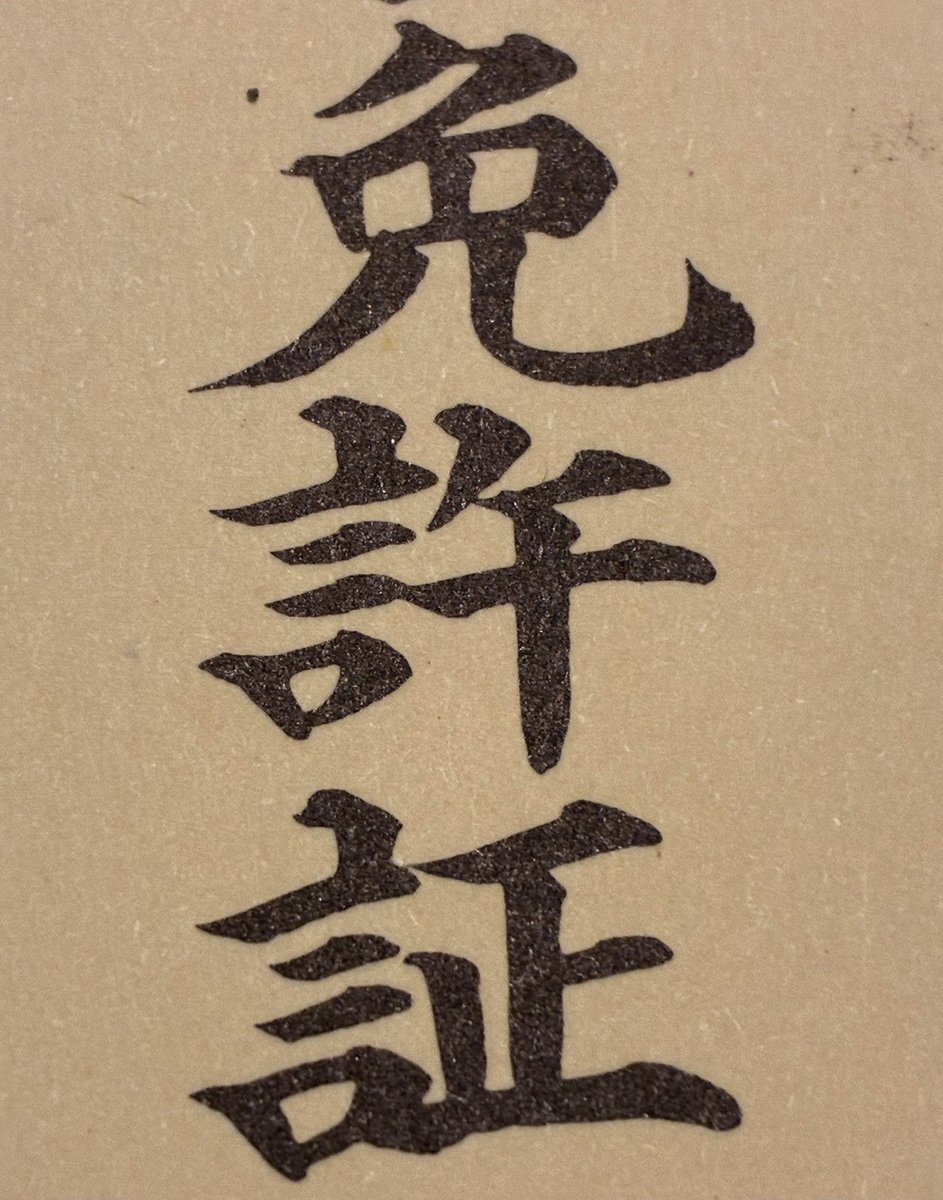 免許証